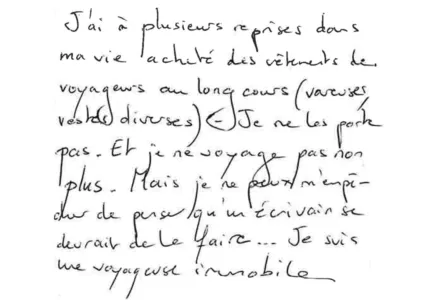 J'ai à plusieurs reprises dans
ma vie acheté des vêtements de
voyageurs au long cours (vareuses,
vestes diverses) (-) Je ne les porte
pas. Et je ne voyage pas non
plus. Mais je ne peux m'empê-
cher de penser qu'un écrivain se
devrait de le faire... Je suis
une voyageuse immobile